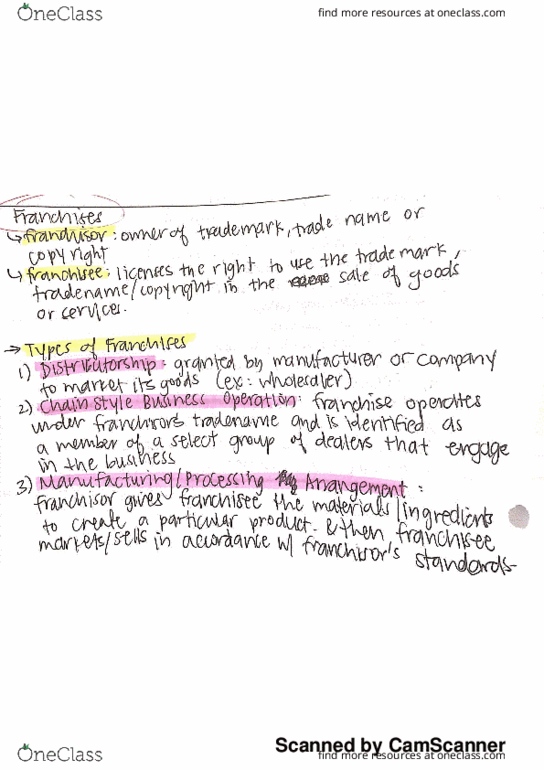 OneClass
find more resources at oneclass.com
Franchises
↳ franchisor: owner of trademark, trade name or
copyright
↳ franchisee: licenses the right to use the trademark,
tradename/copyright in the sale of goods
or services.
→ Types of Franchises
1) Distributorship: granted by manufacturer or company
to market its goods (ex: wholesaler)
2) Chain Style Business Operation: franchise operates
under franchirors tradename and is identified as
a member of a select group of dealers that engage
in the business
3) Manufacturing/Processing Arrangement:
franchisor gives franchisee the materials/ingredients
to create a particular product. & then franchisee
markets/sells in accordance w/ franchisor's standards-
Scanned by CamScanner
OneClass
find more resources at oneclass.com